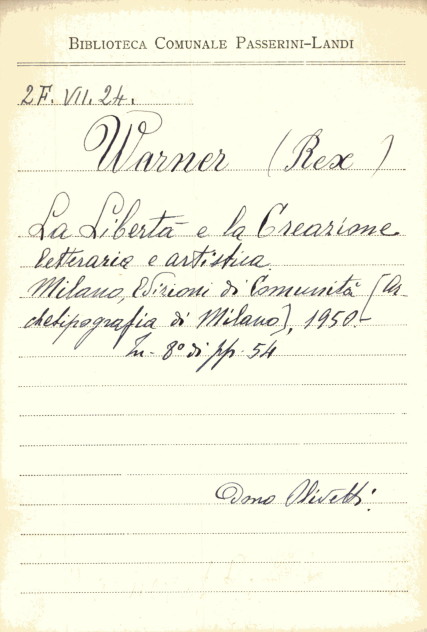 BIBLIOTECA COMUNALE PASSERINI-LANDI
2F. VII. 24.
Warner (Rex)
La Libertà e la Creazione
letteraria e artistica.
Milano, Edizioni di Comunità [Ar-
chetipografia di Milano], 1950.-
In-8° di pp. 54
Dono Olivetti.